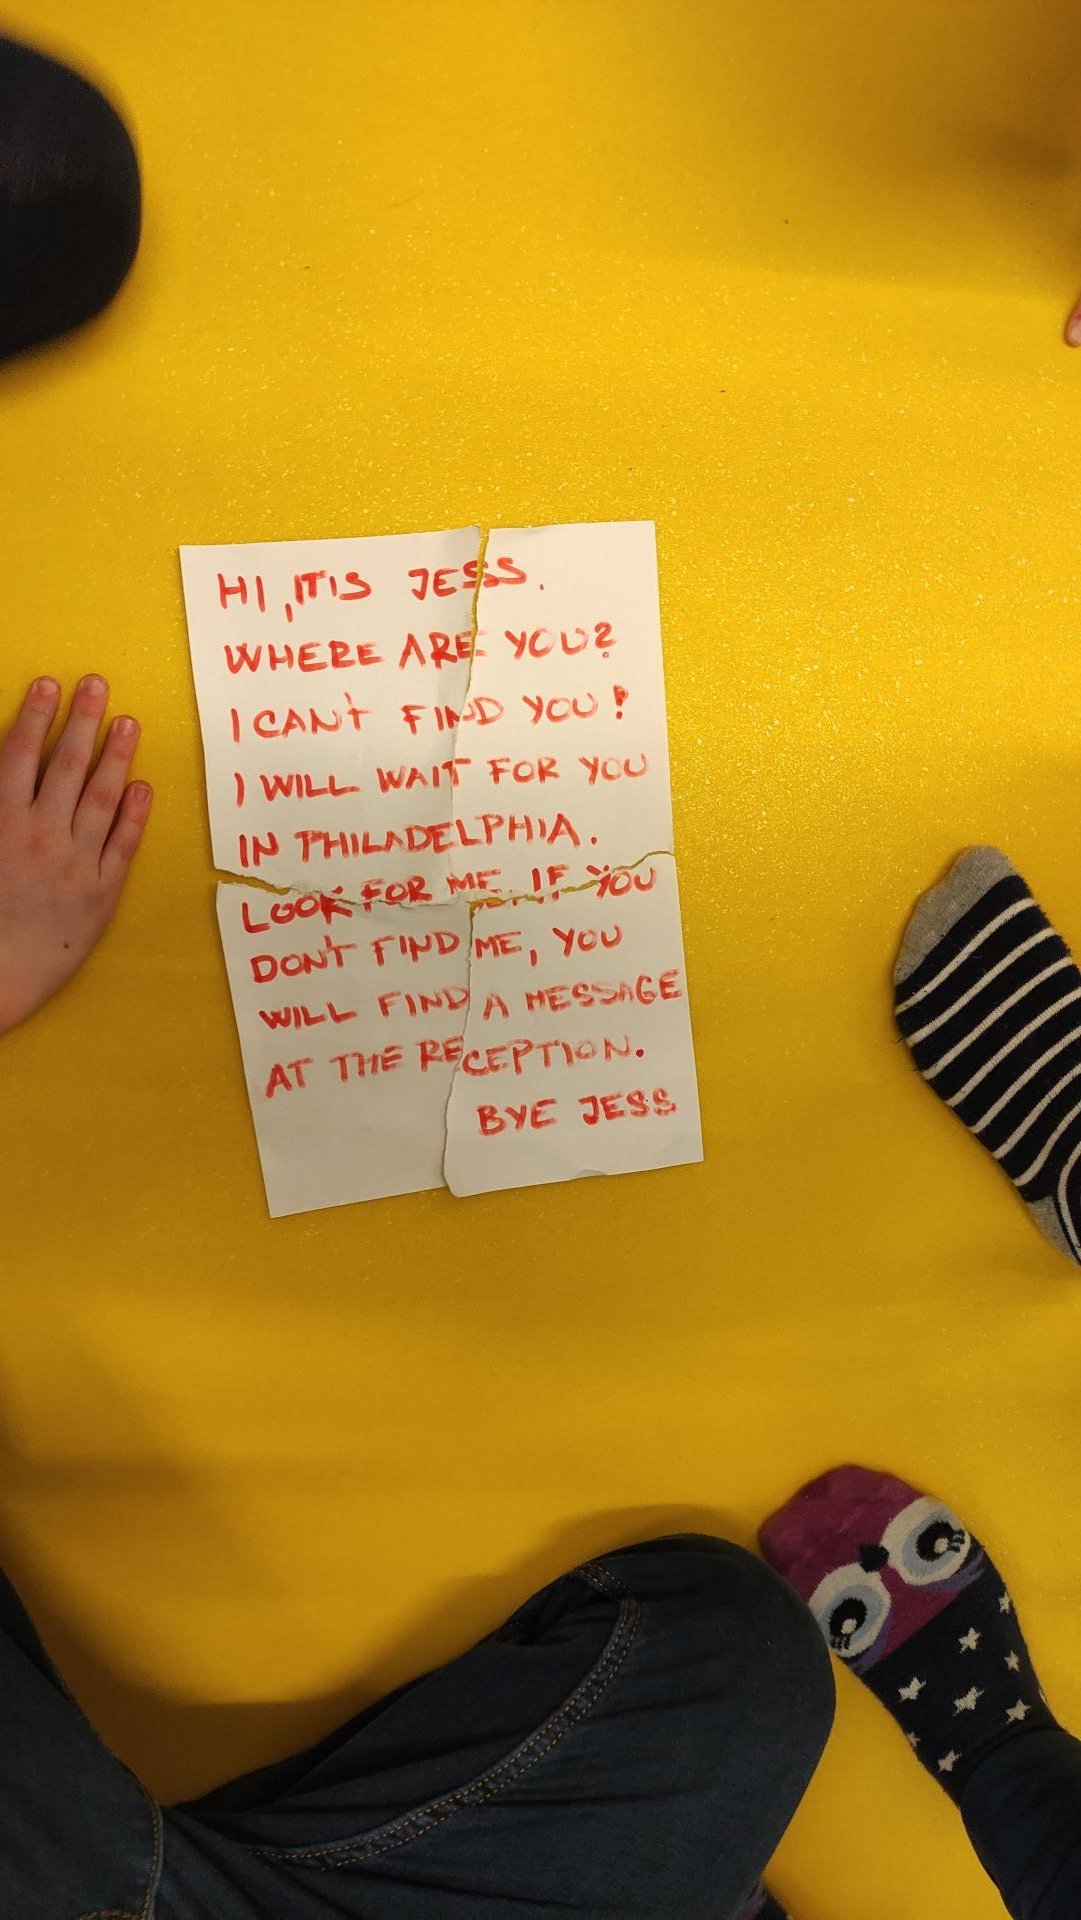 HI, IT IS JESS.
WHERE ARE YOU?
I CAN'T FIND YOU!
I WILL WAIT FOR YOU
IN PHILADELPHIA.
LOOK FOR ME. IF YOU
DON'T FIND ME, YOU
WILL FIND A MESSAGE
AT THE RECEPTION.
BYE JESS